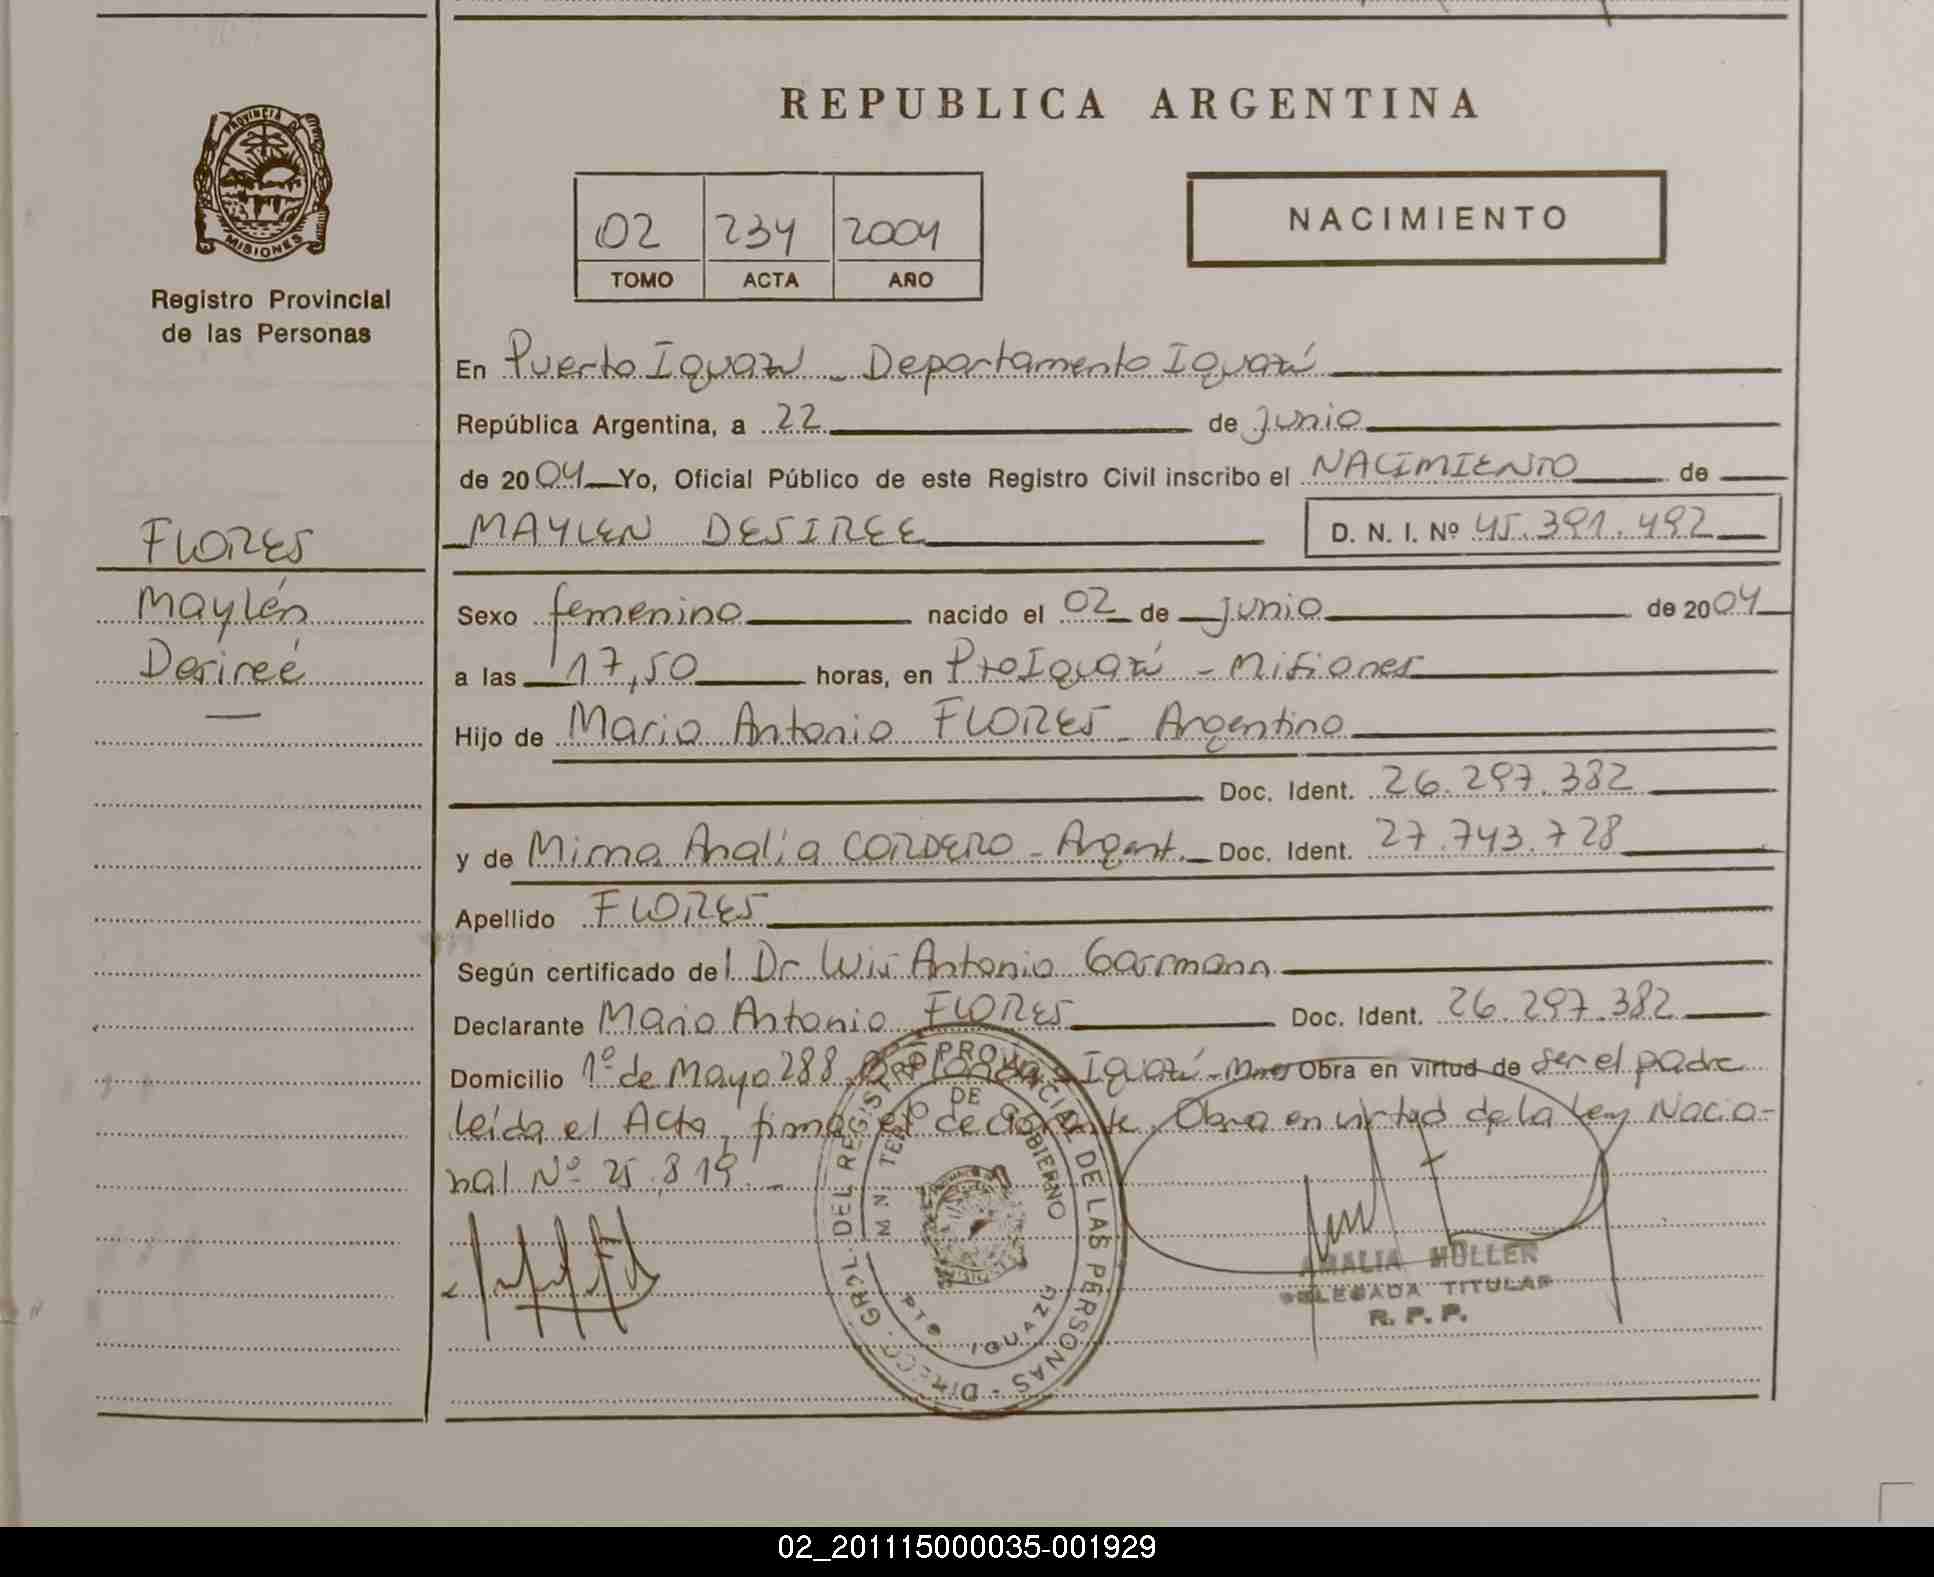 REPUBLICA ARGENTINA
PROVINCIA DE
MISIONES
Registro Provincial
de las Personas
02 234 2004
TOMO ACTA AÑO
NACIMIENTO
En Puerto Iguazú - Departamento Iguazú
República Argentina, a 22 de junio
de 2004 Yo, Oficial Público de este Registro Civil inscribo el NACIMIENTO de
MAYLEN DESIREE D. N. I. Nº 45.391.492
FLORES
Maylén
Desireé
Sexo femenino nacido el 02 de junio de 2004
a las 17,50 horas, en Pto Iguazú - Misiones
Hijo de Mario Antonio FLORES - Argentino
Doc. Ident. 26.297.382
y de Mirna Analía CORDERO - Argent. Doc. Ident. 27.743.728
Apellido FLORES
Según certificado del Dr Luis Antonio Garmann
Declarante Mario Antonio FLORES Doc. Ident. 26.297.382
Domicilio 1º de Mayo 288 Iguazú - Mnes Obra en virtud de ser el padre
Leída el Acta, firma el declarante. Obra en virtud de la Ley Nacio-
nal Nº 25.819. -
DIRECC. GRAL. DEL REGISTRO PROVINCIAL DE LAS PERSONAS
DE GOBIERNO
PTO IGUAZU
AMALIA MULLER
DELEGADA TITULAR
R. P. P.
02_201115000035-001929